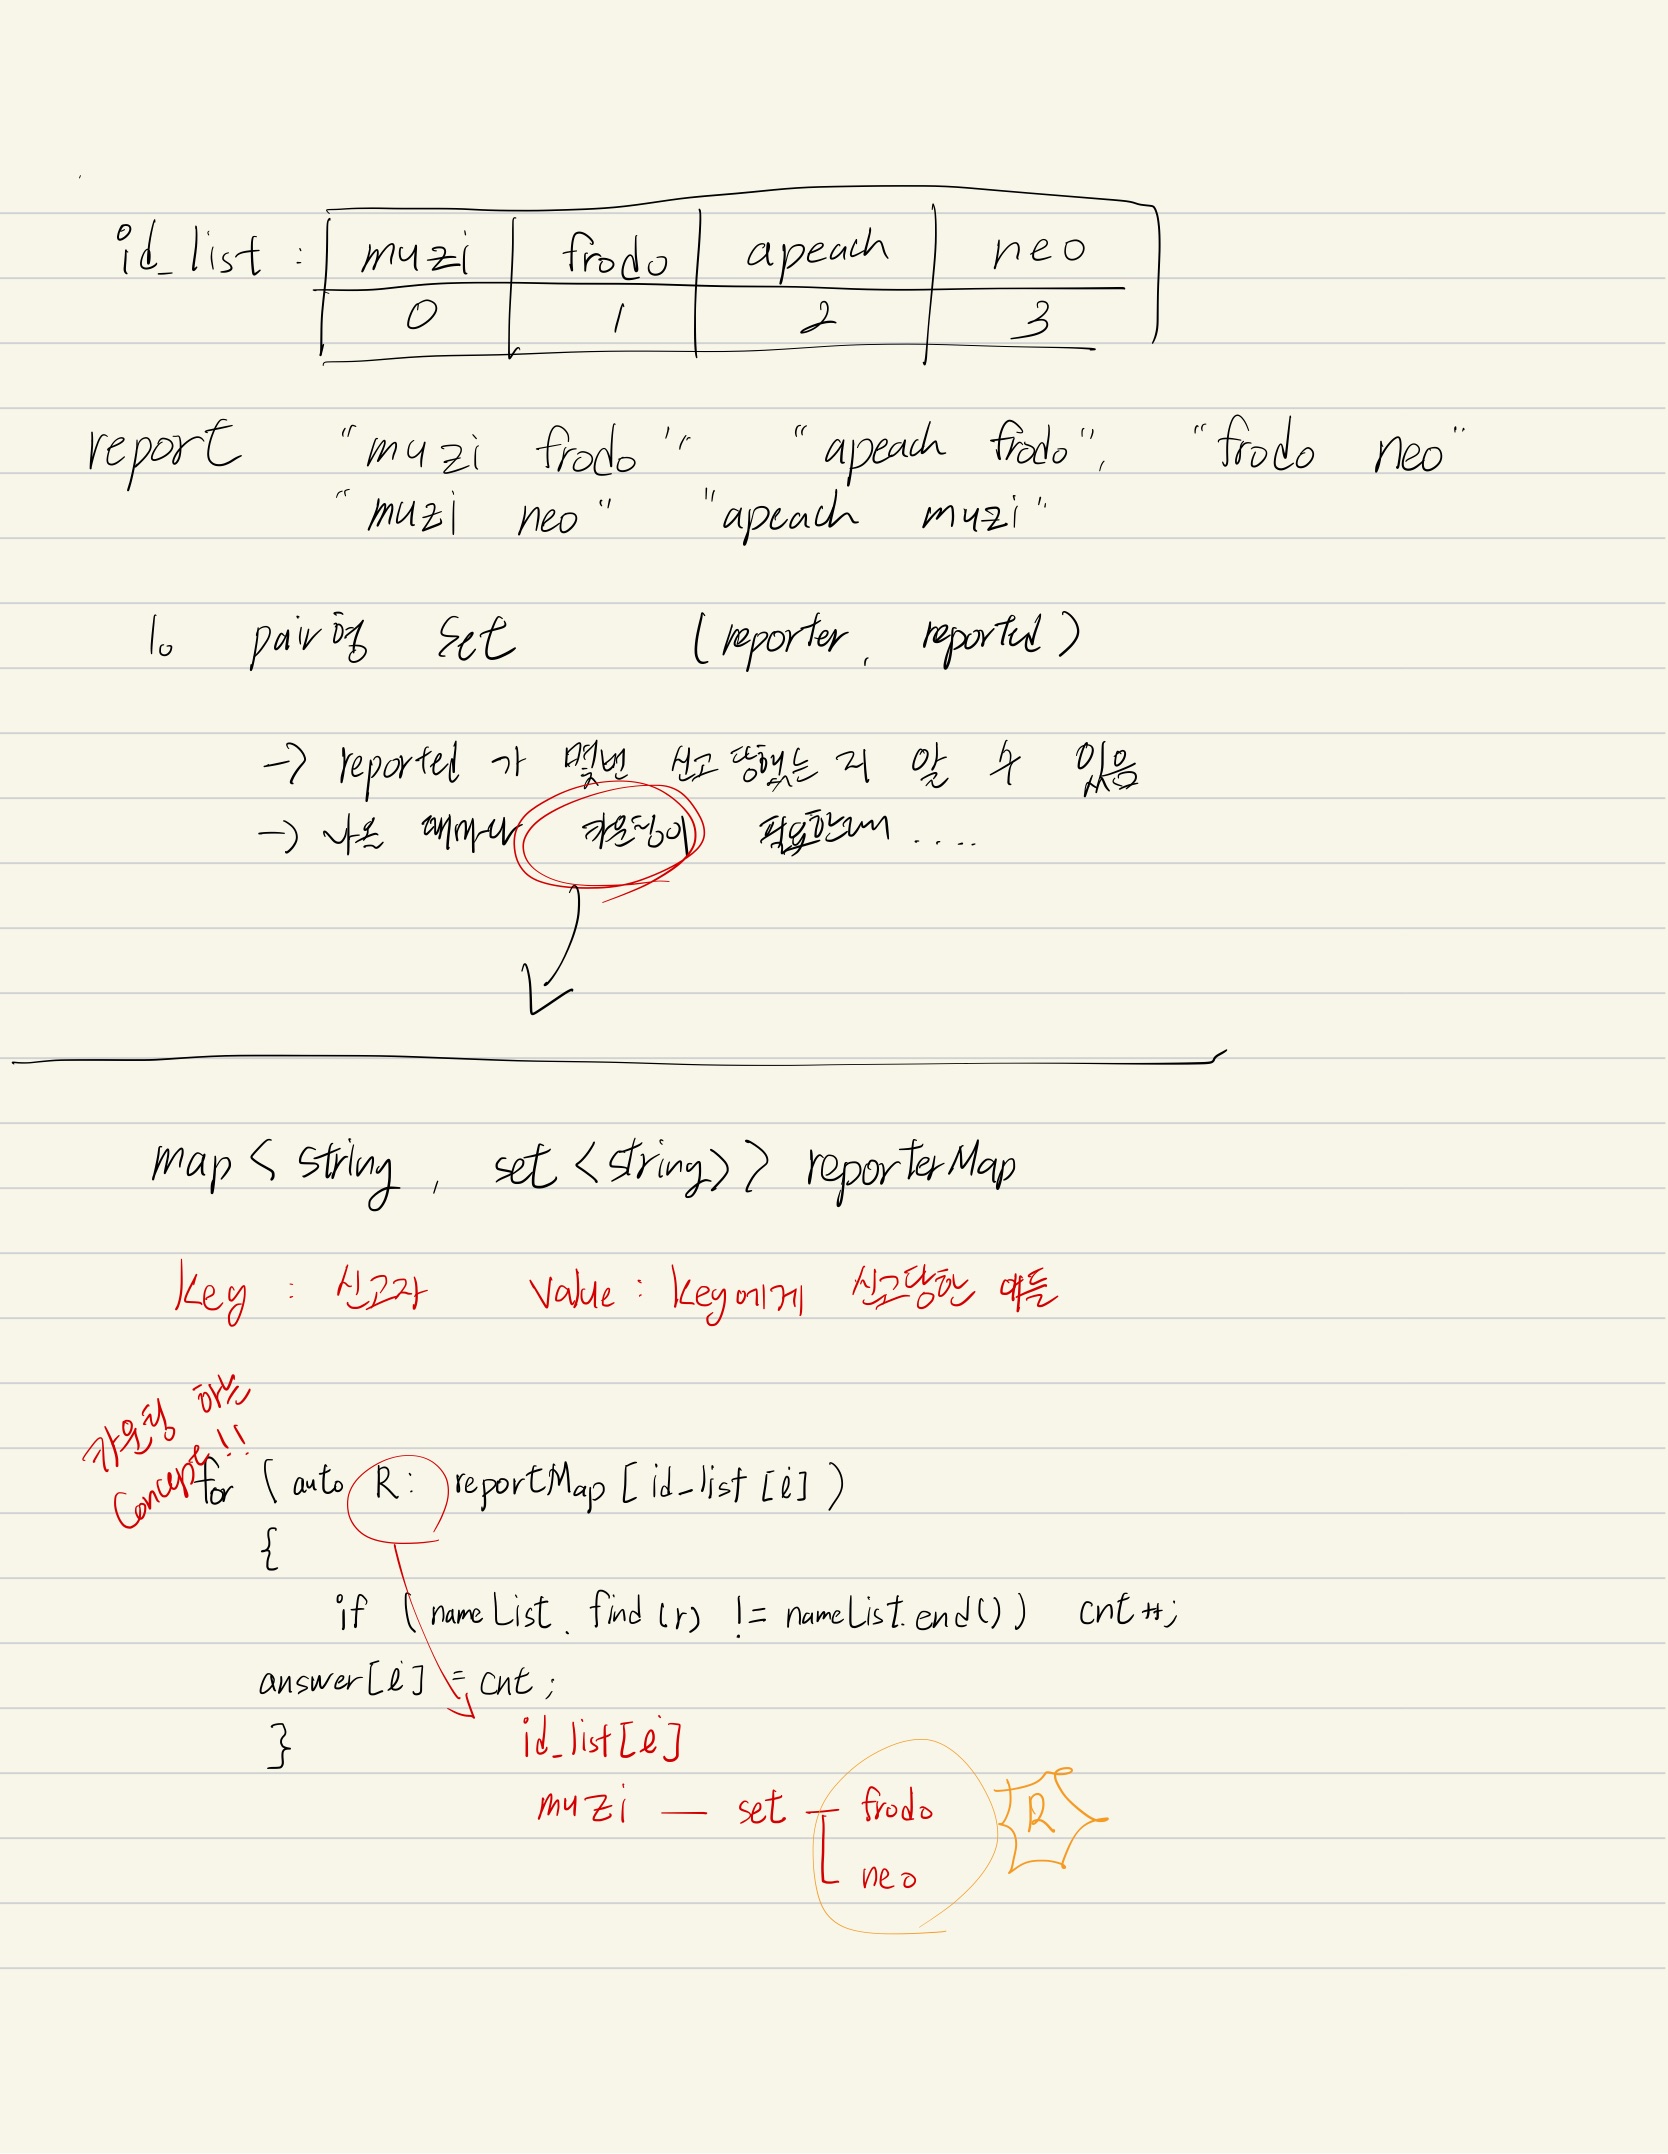 id_list : muzi frodo apeach neo
0 1 2 3
report "muzi frodo" "apeach frodo", "frodo neo"
"muzi neo" "apeach muzi"
1. pair형 set (reporter, reported)
→ reported 가 몇번 신고 당했는 지 알 수 있음
→ 나온 때마다 카운팅이 필요한데 ....
map < string , set <string> > reporterMap
key : 신고자 value : key에게 신고당한 애들
카운팅 하는
Concept!!
for ( auto R : reportMap [ id_list [i] )
{
if ( nameList . find (r) != nameList.end() ) cnt ++;
answer[i] = cnt ;
}
id_list[i]
muzi — set — frodo R
neo